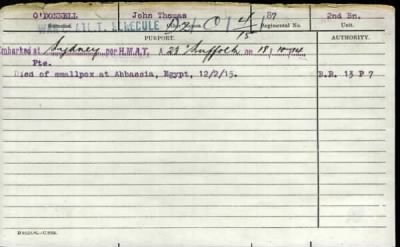 O'DONNELL John Thomas 187 2nd Bn.
Surname. Regimental No. Unit.
PURPORT. AUTHORITY.
Embarked at Sydney per H.M.A.T. A 23 Suffolk on 18/10/14
Pte.
Died of smallpox at Abbassia, Egypt, 12/2/15. B.R. 13 P 7